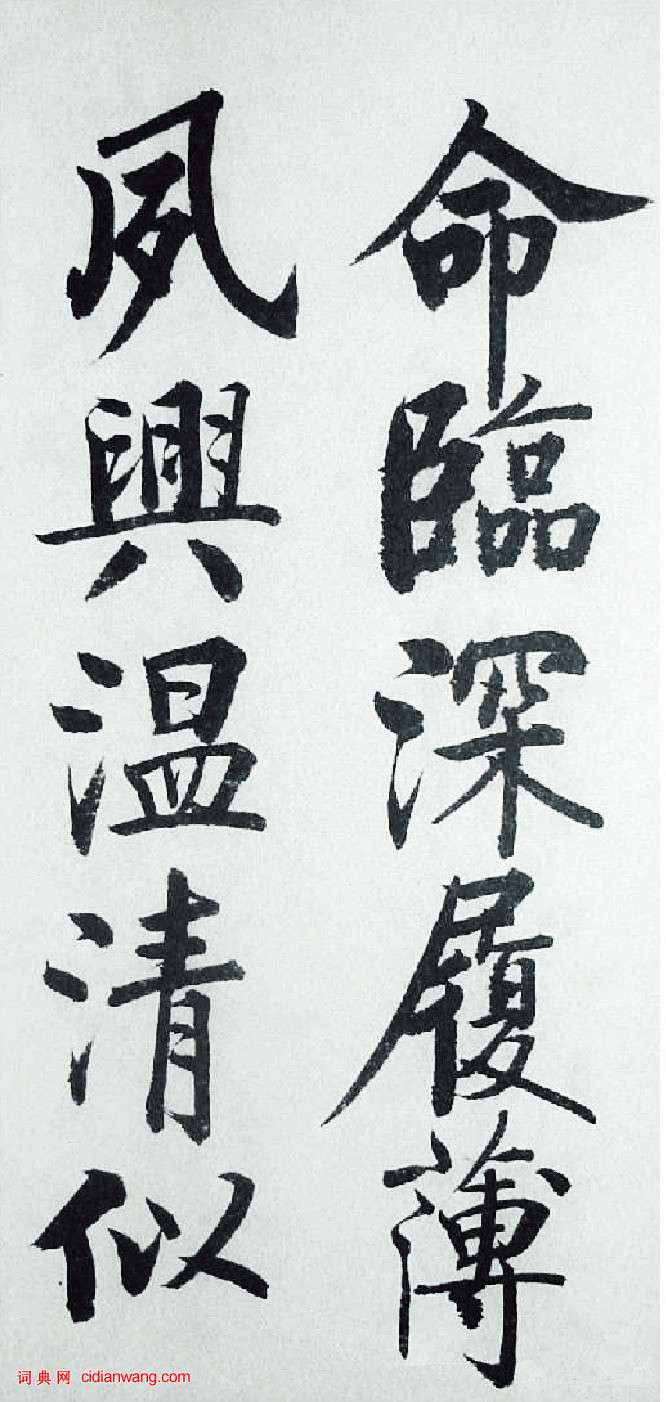 命臨深履薄
夙興温清似
词典网 cidianwang.com